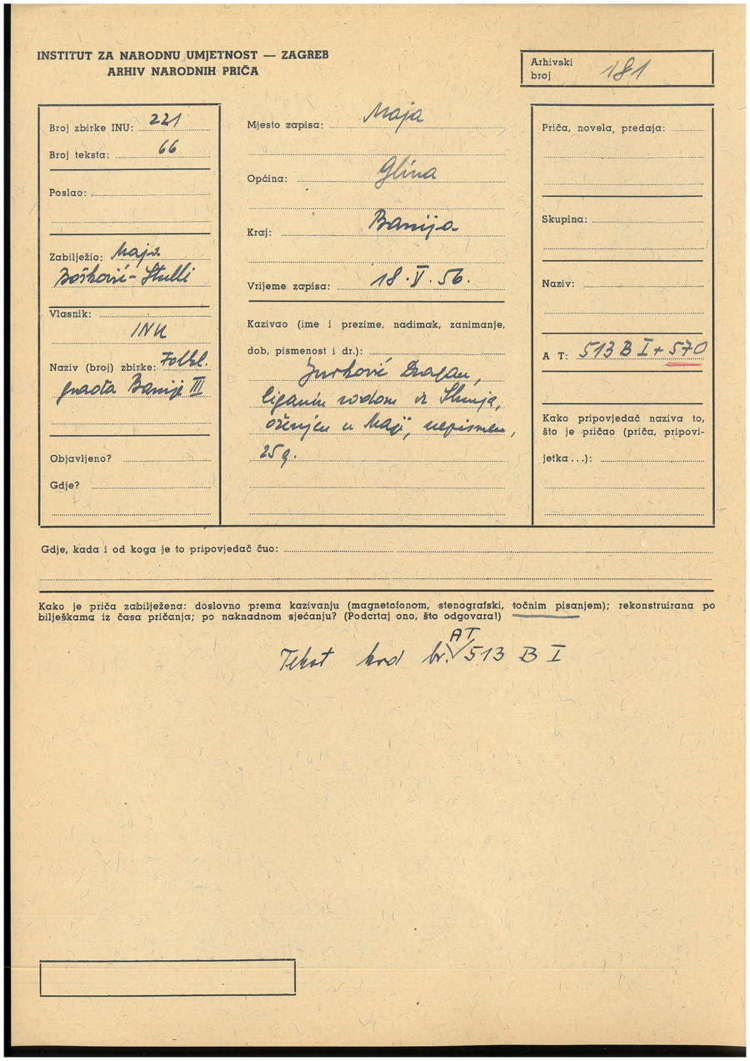 INSTITUT ZA NARODNU UMJETNOST — ZAGREB
ARHIV NARODNIH PRIČA
Arhivski
broj 181
Broj zbirke INU: 221
Broj teksta: 66
Poslao:
Zabilježio: Maja
Bošković-Stulli
Vlasnik:
INU
Naziv (broj) zbirke: Folkl.
građa Banije III
Objavljeno?
Gdje?
Mjesto zapisa: Maja
Općina: Glina
Kraj: Banija
Vrijeme zapisa: 18. V. 56.
Kazivao (ime i prezime, nadimak, zanimanje,
dob, pismenost i dr.):
Jurković Dragan,
Ciganin rodom iz Slunja,
oženjen u Maji, nepismen,
25 g.
Priča, novela, predaja:
Skupina:
Naziv:
A T: 513 B I + 570
Kako pripovjedač naziva to,
što je pričao (priča, pripovi-
jetka...):
Gdje, kada i od koga je to pripovjedač čuo:
Kako je priča zabilježena: doslovno prema kazivanju (magnetofonom, stenografski, točnim pisanjem); rekonstruirana po
bilješkama iz časa pričanja; po naknadnom sjećanju? (Podcrtaj ono, što odgovara!)
Tekst kod br. AT 513 B I